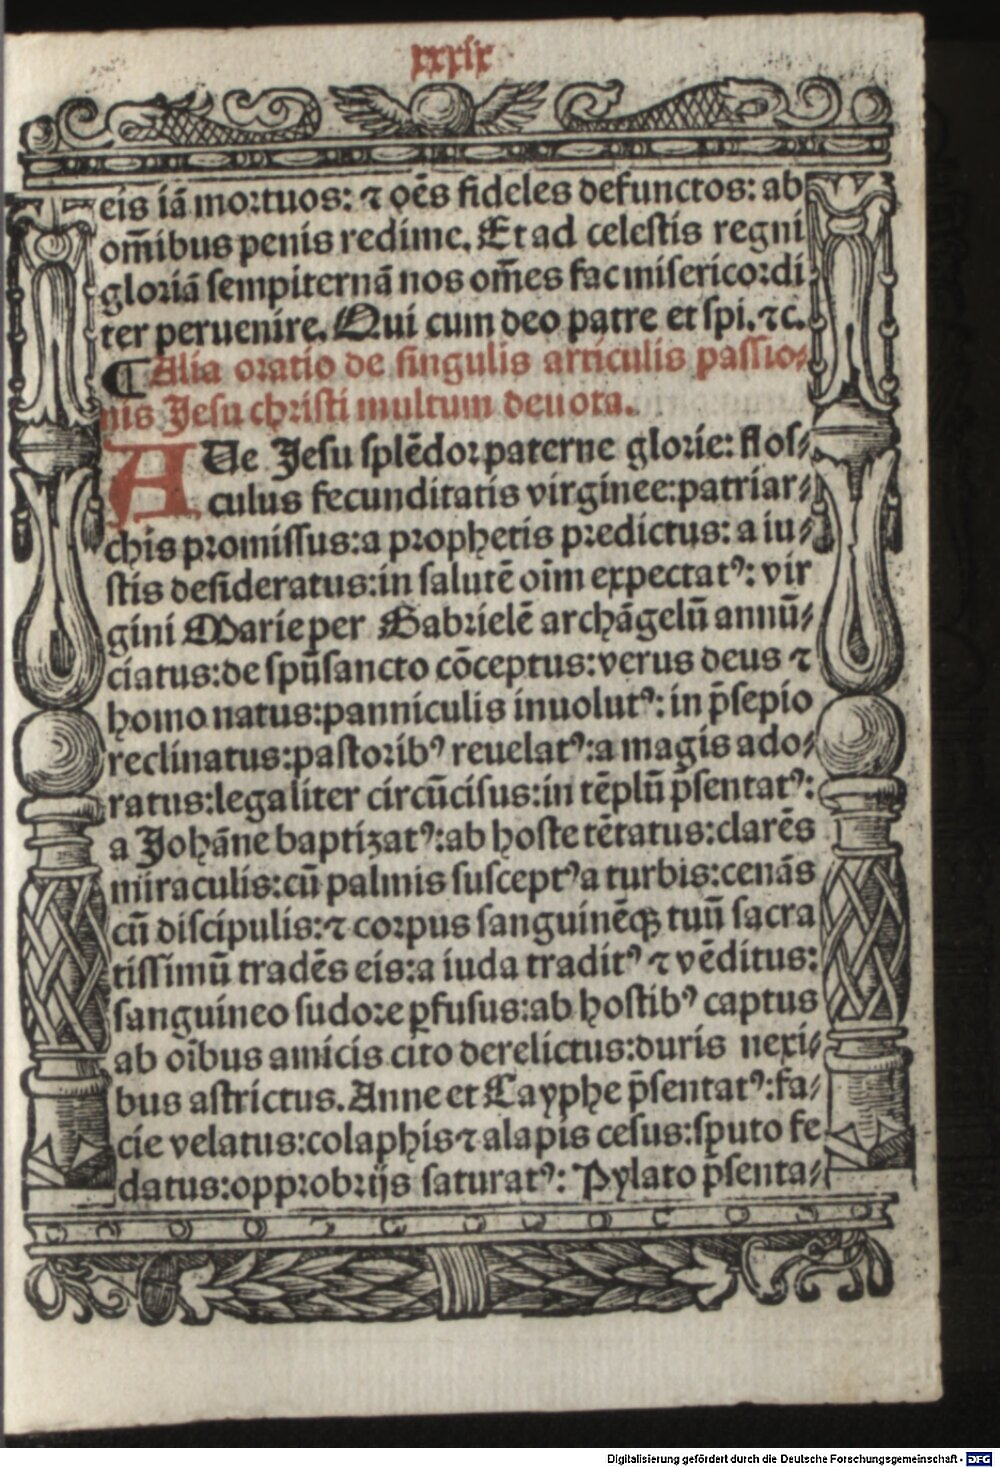 xxxix
eis iā mortuos: ⁊ oēs fideles defunctos: ab
om̄ibus penis redime. Et ad celestis regni
gloriā sempiternā nos om̄es fac misericordi
ter peruenire. Qui cum deo patre et spi. ⁊c.
¶ Alia oratio de singulis articulis passio⸗
nis Jesu christi multum deuota.
AUe Jesu splēdor paterne glorie: flos⸗
culus fecunditatis virginee: patriar⸗
chis promissus: a prophetis predictus: a iu⸗
stis desideratus: in salutē oīm expectatꝰ: vir
gini Marie per Gabrielē archāgelū annū⸗
ciatus: de spūsancto cōceptus: verus deus ⁊
homo natus: panniculis inuolutꝰ: in p̄sepio
reclinatus: pastoribꝰ reuelatꝰ: a magis ado⸗
ratus: legaliter circūcisus: in tēplū p̄sentatꝰ:
a Johāne baptizatꝰ: ab hoste tētatus: clarēs
miraculis: cū palmis susceptꝰ a turbis: cenās
cū discipulis: ⁊ corpus sanguinēqꝫ tuū sacra
tissimū tradēs eis: a iuda traditꝰ ⁊ vēditus:
sanguineo sudore ꝑfusus: ab hostibꝰ captus
ab oībus amicis cito derelictus: duris nexi⸗
bus astrictus. Anne et Cayphe p̄sentatꝰ: fa⸗
cie velatus: colaphis ⁊ alapis cesus: sputo fe
datus: opprobrijs saturatꝰ: Pylato p̄senta⸗
Digitalisierung gefördert durch die Deutsche Forschungsgemeinschaft - DFG